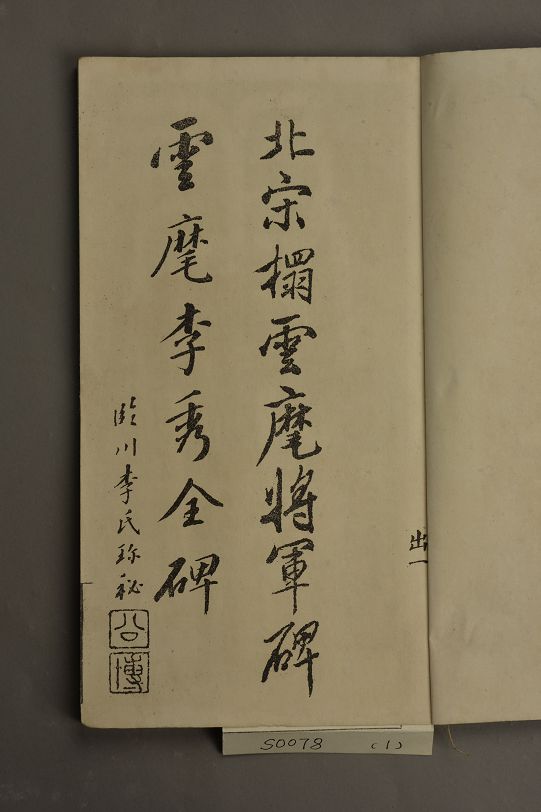 北宋榻雲麾將軍碑
雲麾李秀全碑
臨川李氏珍秘
公博
出一
S0078 (1)